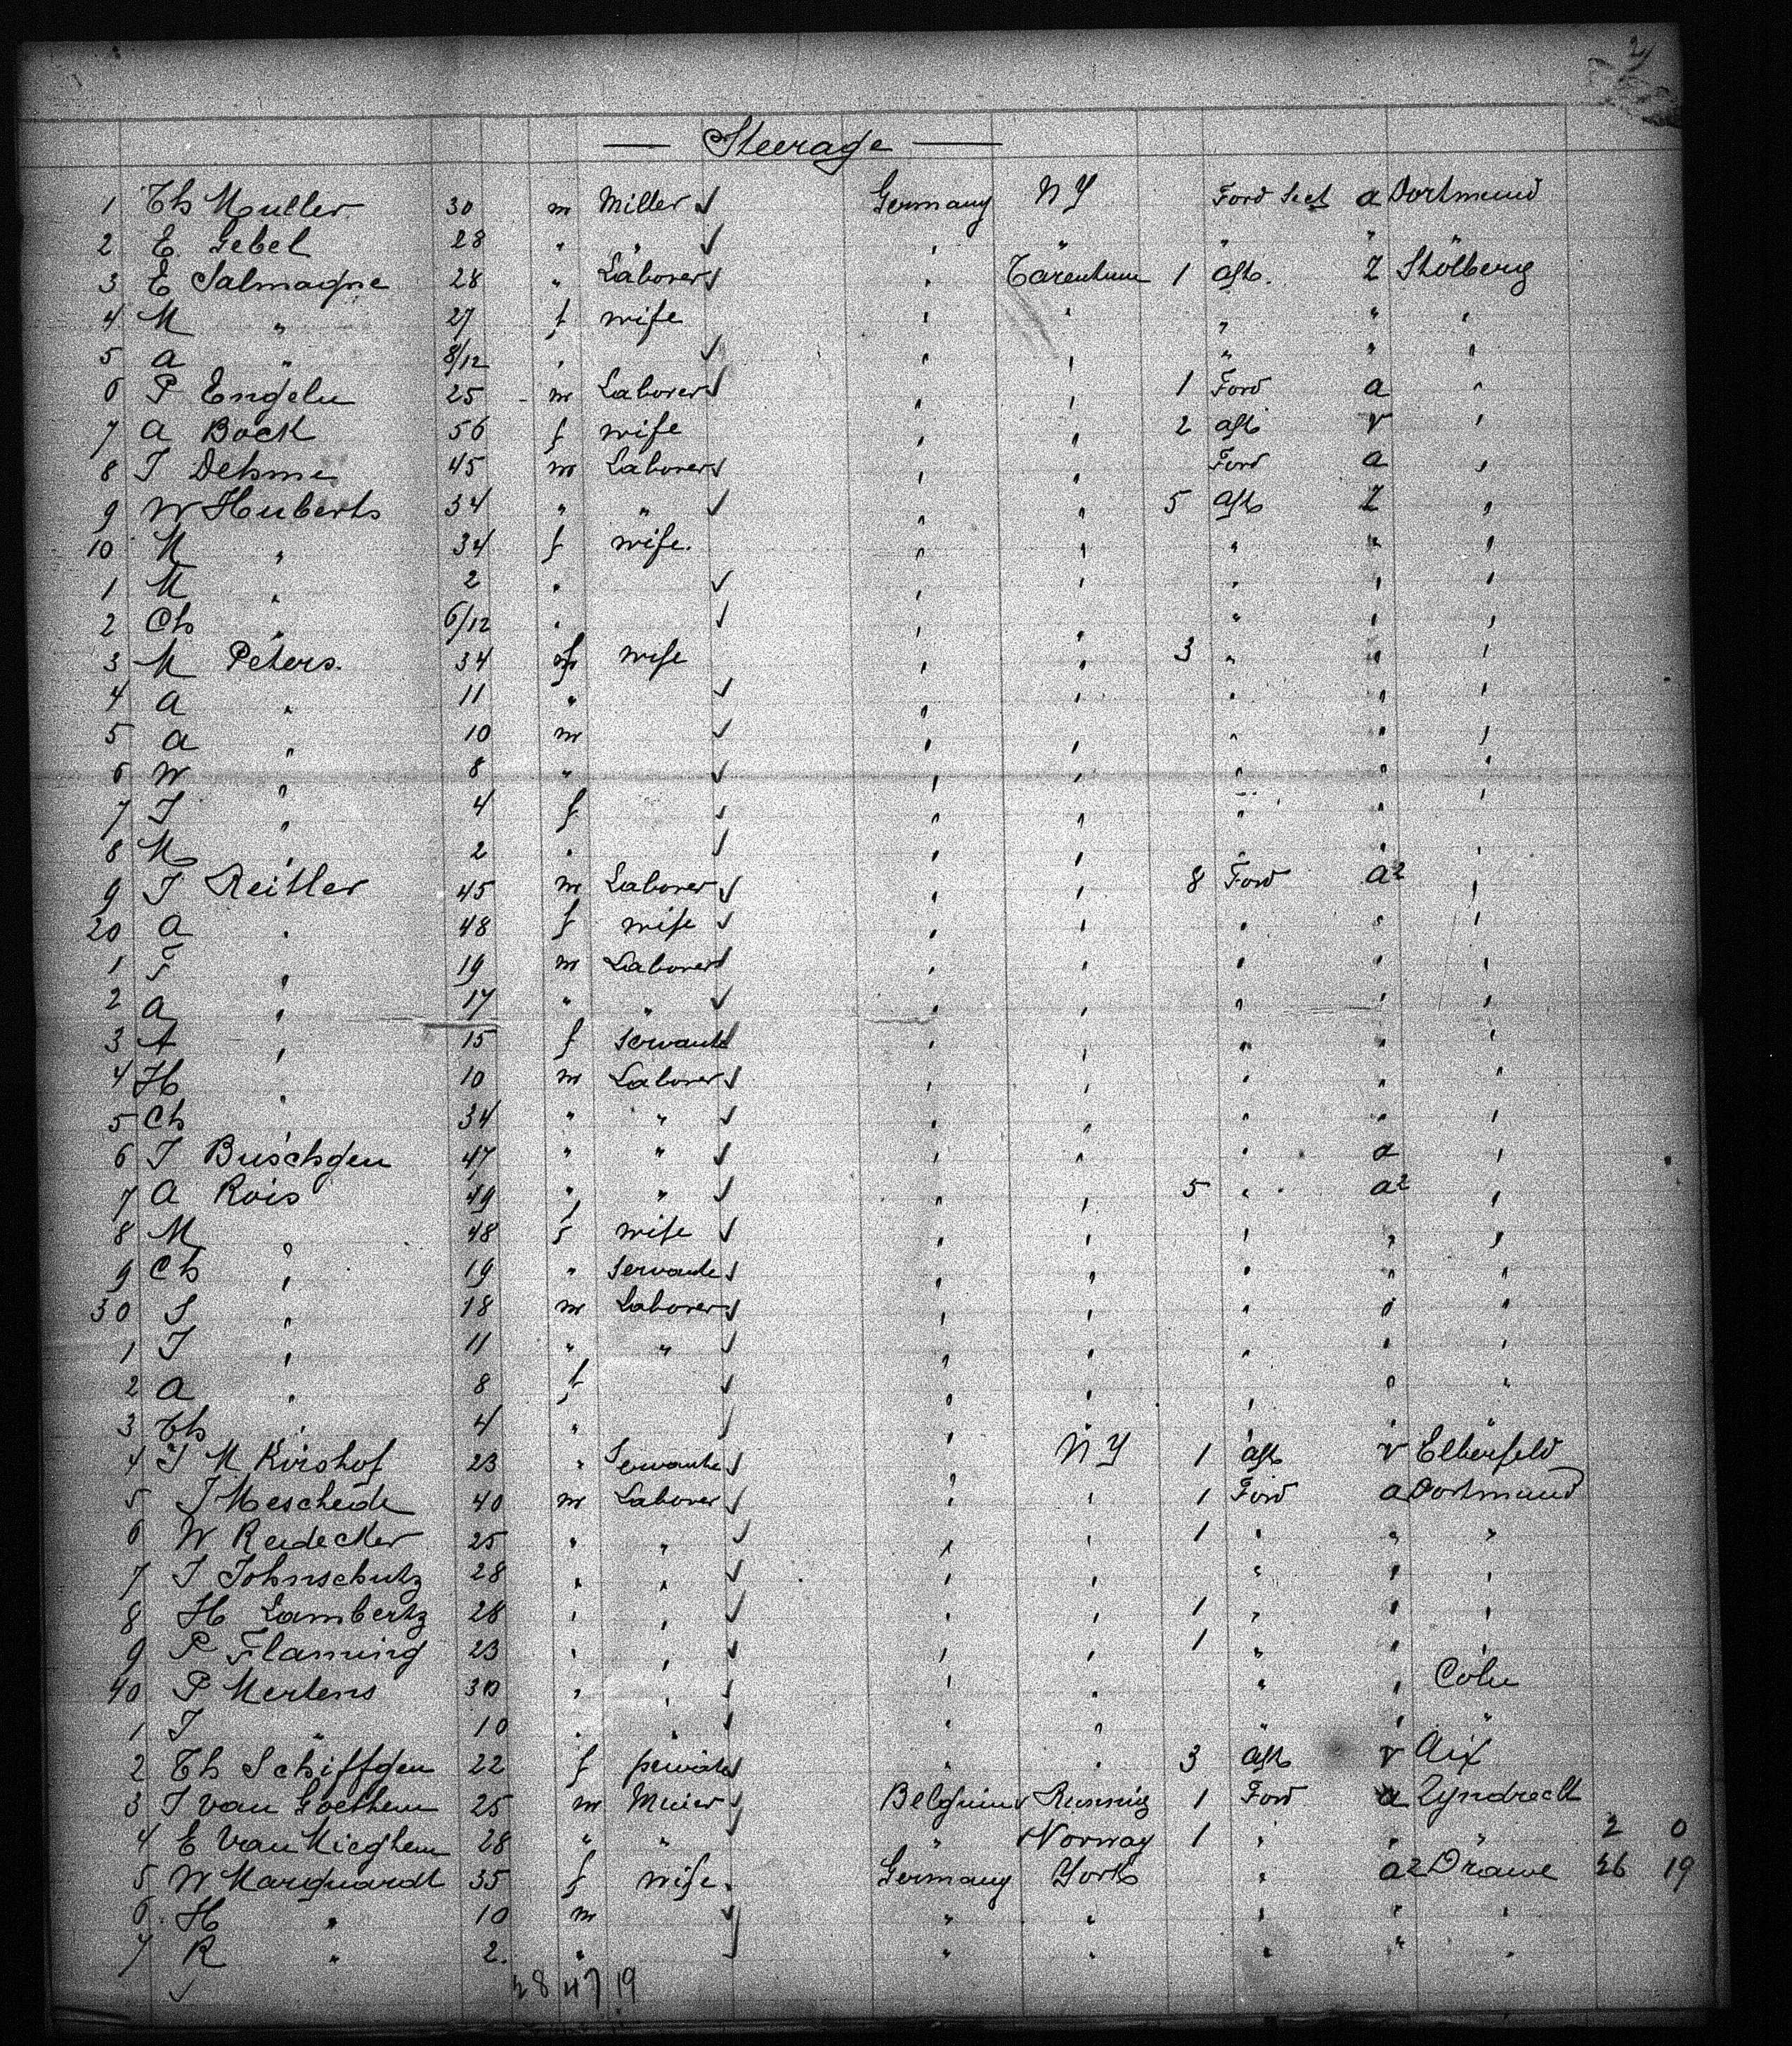 2
— Steerage —
1 Th Muller 30 m Miller Germany NY Ford Sect a Dortmund
2 E Gebel 28 " " " " " " "
3 E Salmagne 28 " Laborer " Tarentum 1 aft. Z Stolberg
4 M " 27 f wife " " " " "
5 a " 8/12 " " " " " "
6 P Engeln 25 m Laborer " " 1 Ford a "
7 a Bock 56 f wife " " 2 aft v "
8 J Dehme 45 m Laborer " " Ford a "
9 W Huberts 34 " " " " 5 aft Z "
10 M " 34 f wife. " " " " "
1 M " 2 " " " " " "
2 Ch " 6/12 " " " " " "
3 M Peters. 34 f wife " " 3 " " "
4 a " 11 " " " " " "
5 a " 10 m " " " " "
6 W " 8 " " " " " "
7 J " 4 f " " " " "
8 M " 2 " " " " " "
9 J Reitler 45 m Laborer " " 8 Ford a2 "
20 a " 48 f wife " " " " "
1 F " 19 m Laborer " " " " "
2 a " 17 " " " " " " "
3 A " 15 f Servant " " " " "
4 H " 10 m Laborer " " " " "
5 Ch " 34 " " " " " " "
6 J Buschgen 47 " " " " " a "
7 a Rois 49 " " " " 5 " a2 "
8 M " 48 f wife " " " " "
9 Ch " 19 " Servante " " " " "
30 S " 18 m Laborer " " " " "
1 J " 11 " " " " " " "
2 a " 8 f " " " " "
3 Th " 4 " " " " " "
4 J M Kirshof 23 " Servante " NY 1 aft v Elberfeld
5 J Mescheide 40 m Laborer " " 1 Ford a Dortmund
6 W Redecker 25 " " " " 1 " " "
7 J Johnschutz 28 " " " " " " "
8 H Lambertz 26 " " " " 1 " " "
9 P Flaming 23 " " " " 1 " " "
40 P Mertens 30 " " " " " " Coln
1 J " 10 " " " " " " "
2 Th Schiffgen 22 f private " " 3 aft v Aix
3 J van Goethem 25 m Miner Belgium 1 Ford a Zyndrecht
4 E Van Mieghem 28 " " " Norway 1 " " " 2 0
5 W Marquardt 35 f wife. Germany York " a2 Drawe 26 19
6 H " 10 m " " " " "
7 R " 2. " " " " " "
28 47 19